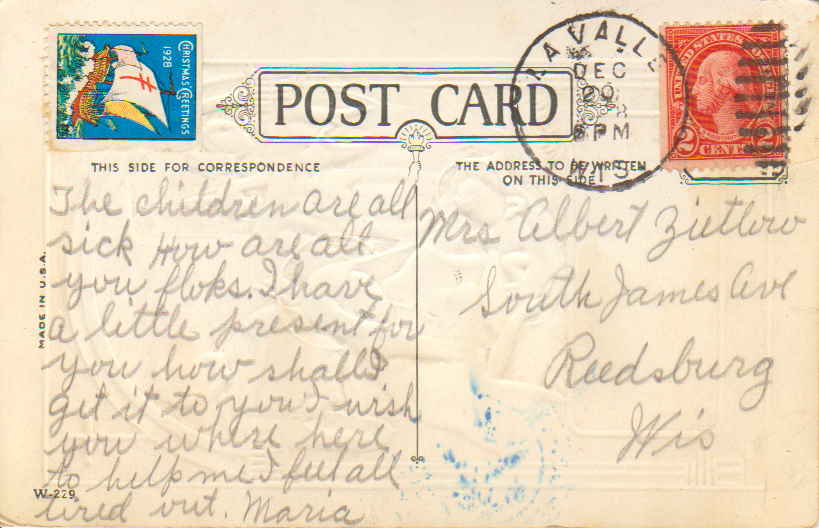 CHRISTMAS GREETINGS
1928
POST CARD
LA VALLE
DEC
6 PM
WIS.
UNITED STATES
2 CENTS 2
THIS SIDE FOR CORRESPONDENCE
THE ADDRESS TO BE WRITTEN
ON THIS SIDE
The children are all
sick How are all
you floks. I have
a little present for
you how shall I
get it to you I wish
you where here
to help me I feel all
tired out. Maria
Mrs Albert Zietlow
South James Ave
Reedsburg
Wis
MADE IN U.S.A.
W-229